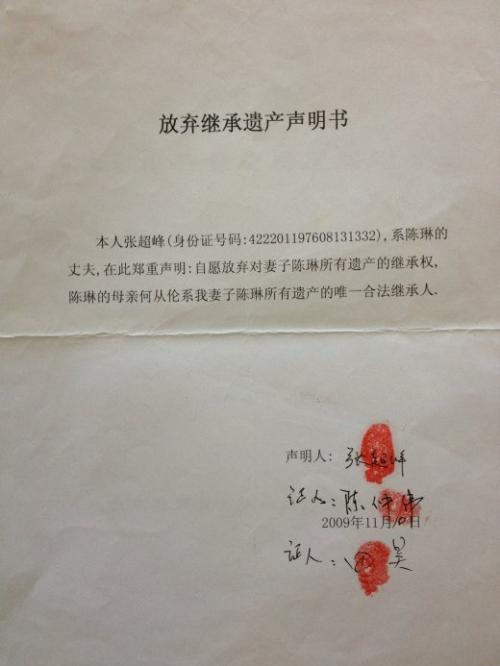 放弃继承遗产声明书
本人张超峰(身份证号码:422201197608131332),系陈琳的
丈夫,在此郑重声明:自愿放弃对妻子陈琳所有遗产的继承权,
陈琳的母亲何从伦系我妻子陈琳所有遗产的唯一合法继承人.
声明人: 张超峰
证人: 陈
2009年11月10日
证人: 昊